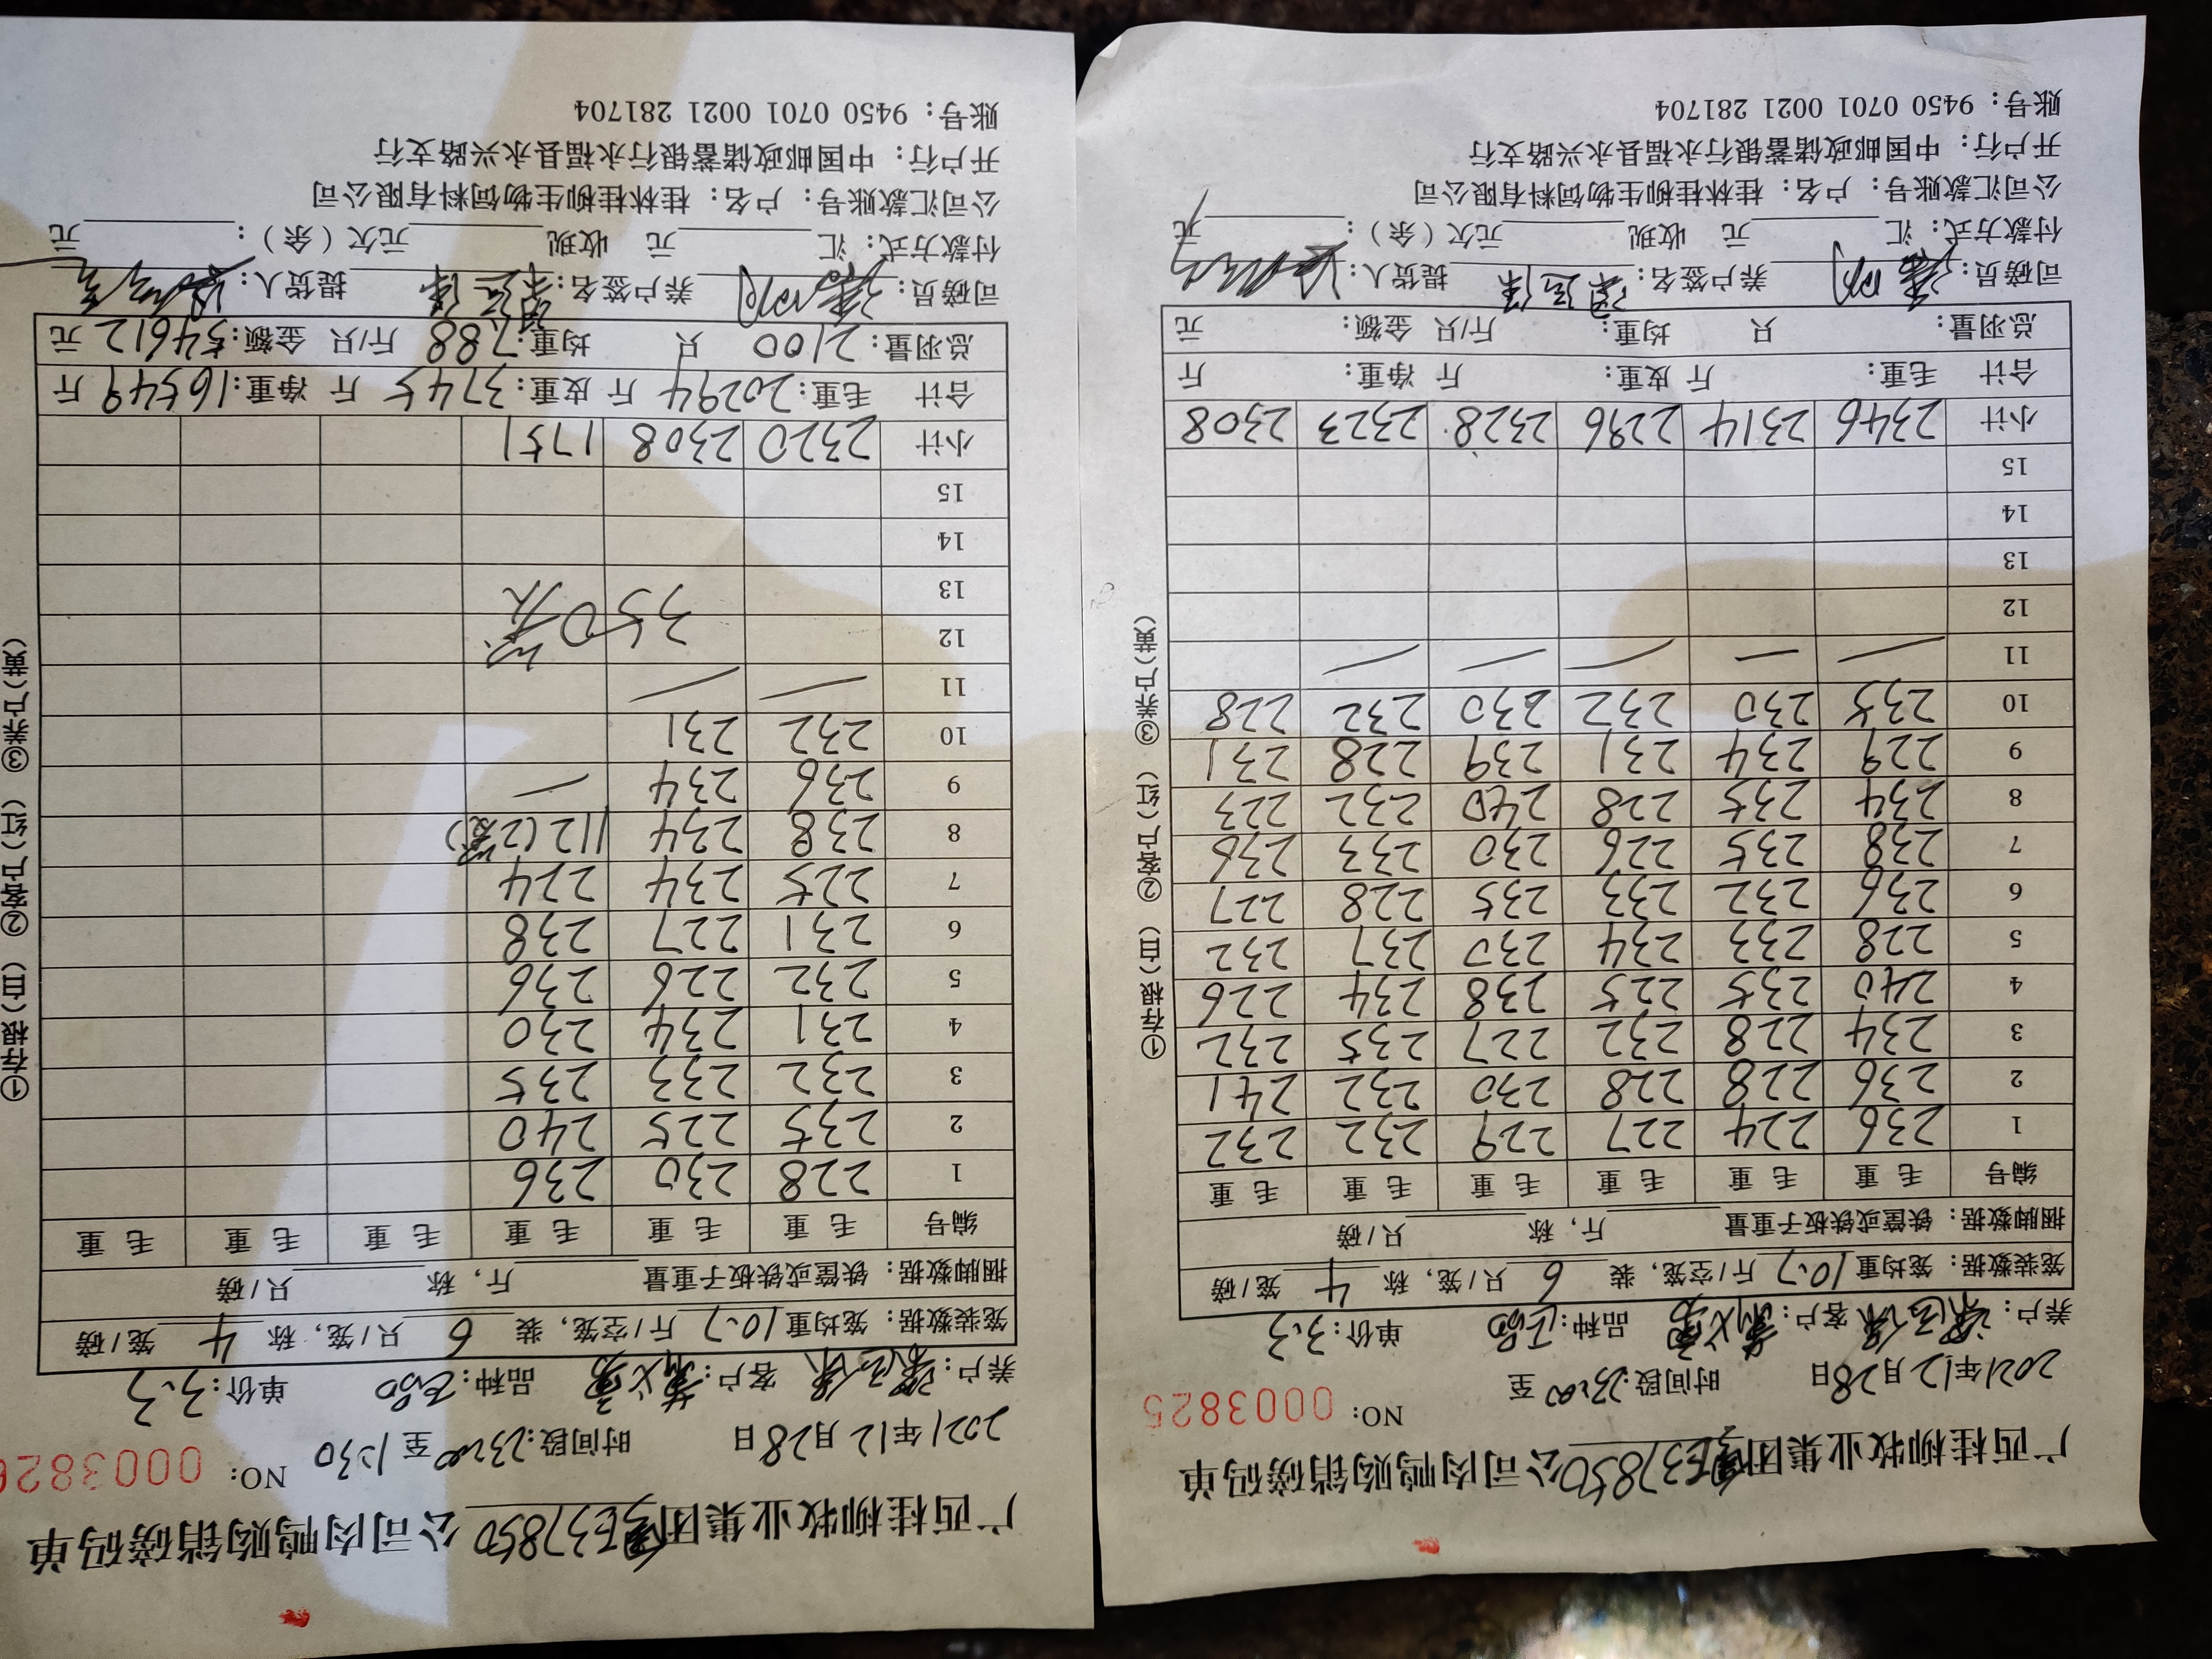 广西桂柳牧业集团 E37850 公司肉鸭购销磅码单
NO: 0003825
2021年12月28日 时间段:23:00 至
养户: 客户: 品种: 单价:3.3
笼装数据: 笼均重10.7斤/空笼, 装 6 只/笼, 称 4 笼/磅
捆脚数据: 铁筐或铁板子重量 斤, 称 只/磅
编号 毛重 毛重 毛重 毛重 毛重 毛重
1 236 224 227 229 232 232
2 236 228 228 230 232 241
3 234 228 232 227 235 232
4 240 235 225 238 234 226
5 228 233 234 230 237 232
6 236 232 233 235 228 227
7 238 235 226 230 233 236
8 234 235 228 240 232 223
9 229 234 231 239 228 231
10 235 230 232 230 232 228
11
12
13
14
15
小计 2346 2314 2296 2328 2323 2308
合计 毛重: 斤 皮重: 斤 净重: 斤
总羽量: 只 均重: 斤/只 金额: 元
司磅员: 养户签名: 提货人:
付款方式: 汇 元 收现 元欠(余): 元
公司汇款账号: 户名: 桂林桂柳生物饲料有限公司
开户行: 中国邮政储蓄银行永福县永兴路支行
账号: 9450 0701 0021 281704
①存根(白) ②客户(红) ③养户(黄)
广西桂柳牧业集团 E37850 公司肉鸭购销磅码单
NO: 0003826
2021年12月28日 时间段:23:00至1:30
养户: 客户: 品种: 单价:3.3
笼装数据: 笼均重10.7斤/空笼, 装 6 只/笼, 称 4 笼/磅
捆脚数据: 铁筐或铁板子重量 斤, 称 只/磅
编号 毛重 毛重 毛重 毛重 毛重 毛重
1 228 230 236
2 235 225 240
3 232 233 235
4 231 234 230
5 232 226 236
6 231 227 238
7 225 234 224
8 238 234 112(2笼)
9 236 234
10 232 231
11
12 350笼
13
14
15
小计 2320 2308 1751
合计 毛重:20294斤 皮重:3745斤 净重:16549斤
总羽量:2100只 均重:7.88斤/只 金额:54612元
司磅员: 养户签名: 提货人:
付款方式: 汇 元 收现 元欠(余): 元
公司汇款账号: 户名: 桂林桂柳生物饲料有限公司
开户行: 中国邮政储蓄银行永福县永兴路支行
账号: 9450 0701 0021 281704
①存根(白) ②客户(红) ③养户(黄)